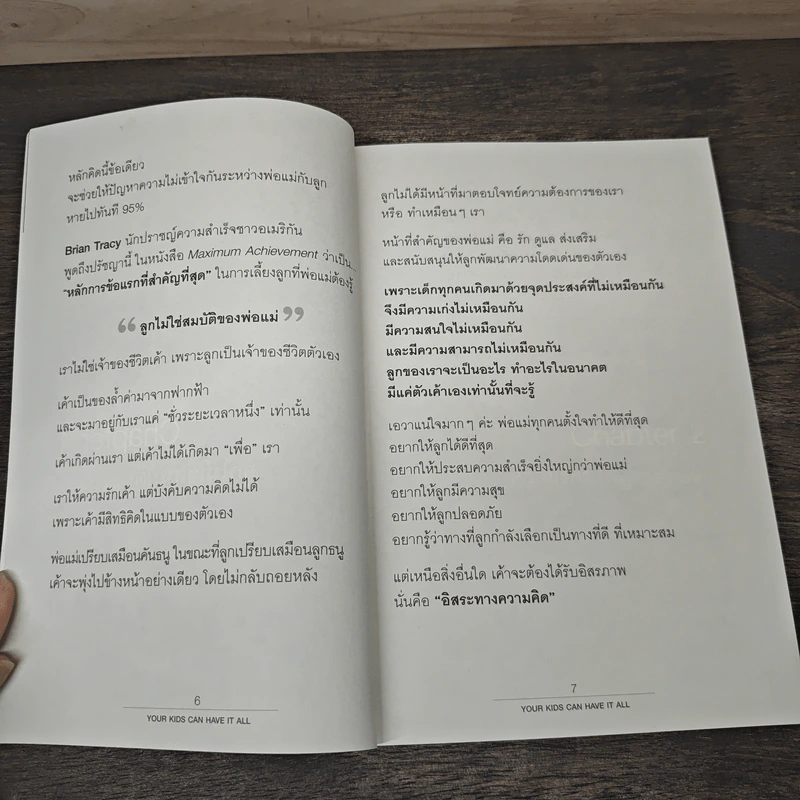 หลักคิดนี้ข้อเดียว
จะช่วยให้ปัญหาความไม่เข้าใจกันระหว่างพ่อแม่กับลูก
หายไปทันที 95%
Brian Tracy นักปราชญ์ความสำเร็จชาวอเมริกัน
พูดถึงปรัชญานี้ ในหนังสือ Maximum Achievement ว่าเป็น...
"หลักการข้อแรกที่สำคัญที่สุด" ในการเลี้ยงลูกที่พ่อแม่ต้องรู้
“ลูกไม่ใช่สมบัติของพ่อแม่”
เราไม่ใช่เจ้าของชีวิตเค้า เพราะลูกเป็นเจ้าของชีวิตตัวเอง
เค้าเป็นของล้ำค่ามาจากฟากฟ้า
และจะมาอยู่กับเราแค่ “ชั่วระยะเวลาหนึ่ง” เท่านั้น
เค้าเกิดผ่านเรา แต่เค้าไม่ได้เกิดมา “เพื่อ” เรา
เราให้ความรักเค้า แต่บังคับความคิดไม่ได้
เพราะเค้ามีสิทธิคิดในแบบของตัวเอง
พ่อแม่เปรียบเสมือนคันธนู ในขณะที่ลูกเปรียบเสมือนลูกธนู
เค้าจะพุ่งไปข้างหน้าอย่างเดียว โดยไม่กลับถอยหลัง
6
YOUR KIDS CAN HAVE IT ALL
ลูกไม่ได้มีหน้าที่มาตอบโจทย์ความต้องการของเรา
หรือ ทำเหมือนๆ เรา
หน้าที่สำคัญของพ่อแม่ คือ รัก ดูแล ส่งเสริม
และสนับสนุนให้ลูกพัฒนาความโดดเด่นของตัวเอง
เพราะเด็กทุกคนเกิดมาด้วยจุดประสงค์ที่ไม่เหมือนกัน
จึงมีความเก่งไม่เหมือนกัน
มีความสนใจไม่เหมือนกัน
และมีความสามารถไม่เหมือนกัน
ลูกของเราจะเป็นอะไร ทำอะไรในอนาคต
มีแค่ตัวเค้าเองเท่านั้นที่จะรู้
เอวาแน่ใจมากๆ ค่ะ พ่อแม่ทุกคนตั้งใจทำให้ดีที่สุด
อยากให้ลูกได้ดีที่สุด
อยากให้ประสบความสำเร็จยิ่งใหญ่กว่าพ่อแม่
อยากให้ลูกมีความสุข
อยากให้ลูกปลอดภัย
อยากรู้ว่าทางที่ลูกกำลังเลือกเป็นทางที่ดี ที่เหมาะสม
แต่เหนือสิ่งอื่นใด เค้าจะต้องได้รับอิสรภาพ
นั่นคือ “อิสระทางความคิด”
7
YOUR KIDS CAN HAVE IT ALL